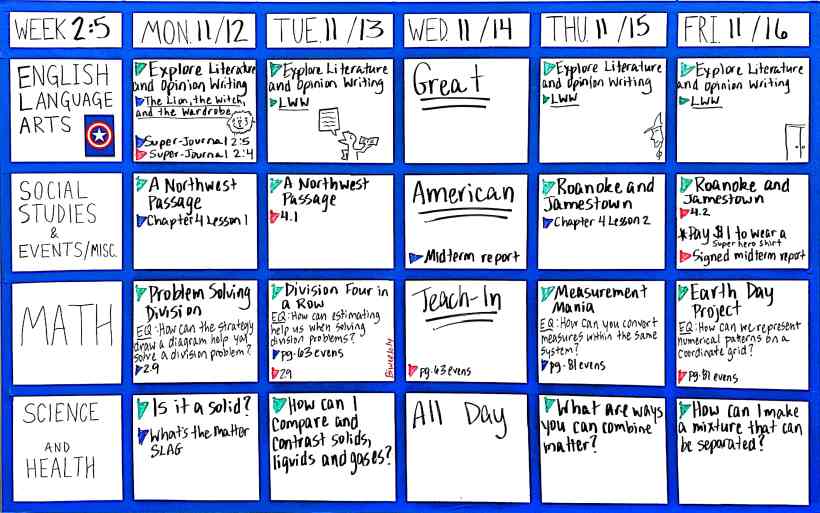 WEEK 2:5
MON. 11/12
TUE. 11/13
WED. 11/14
THU. 11/15
FRI. 11/16
ENGLISH
LANGUAGE
ARTS
Explore Literature
and Opinion Writing
The Lion, the Witch,
and the Wardrobe
Super-Journal 2:5
Super-Journal 2:4
Explore Literature
and Opinion Writing
LWW
Great
Explore Literature
and Opinion Writing
LWW
Explore Literature
and Opinion Writing
LWW
SOCIAL
STUDIES
&
EVENTS/MISC.
A Northwest
Passage
Chapter 4 Lesson 1
A Northwest
Passage
4.1
American
Midterm report
Roanoke and
Jamestown
Chapter 4 Lesson 2
Roanoke and
Jamestown
4.2
*Pay $1 to wear a
super hero shirt
Signed midterm report
MATH
Problem Solving
Division
EQ: How can the strategy
draw a diagram help you
solve a division problem?
2.9
Division Four in
a Row
EQ: How can estimating
help us when solving
division problems?
pg. 63 evens
2.9
Biweekly
Teach-In
pg. 63 evens
Measurement
Mania
EQ: How can you convert
measures within the same
system?
pg. 81 evens
Earth Day
Project
EQ: How can we represent
numerical patterns on a
coordinate grid?
pg. 81 evens
SCIENCE
AND
HEALTH
Is it a solid?
What's the Matter
SLAG
How can I
compare and
contrast solids,
liquids and gases?
All Day
What are ways
you can combine
matter?
How can I make
a mixture that can
be separated?